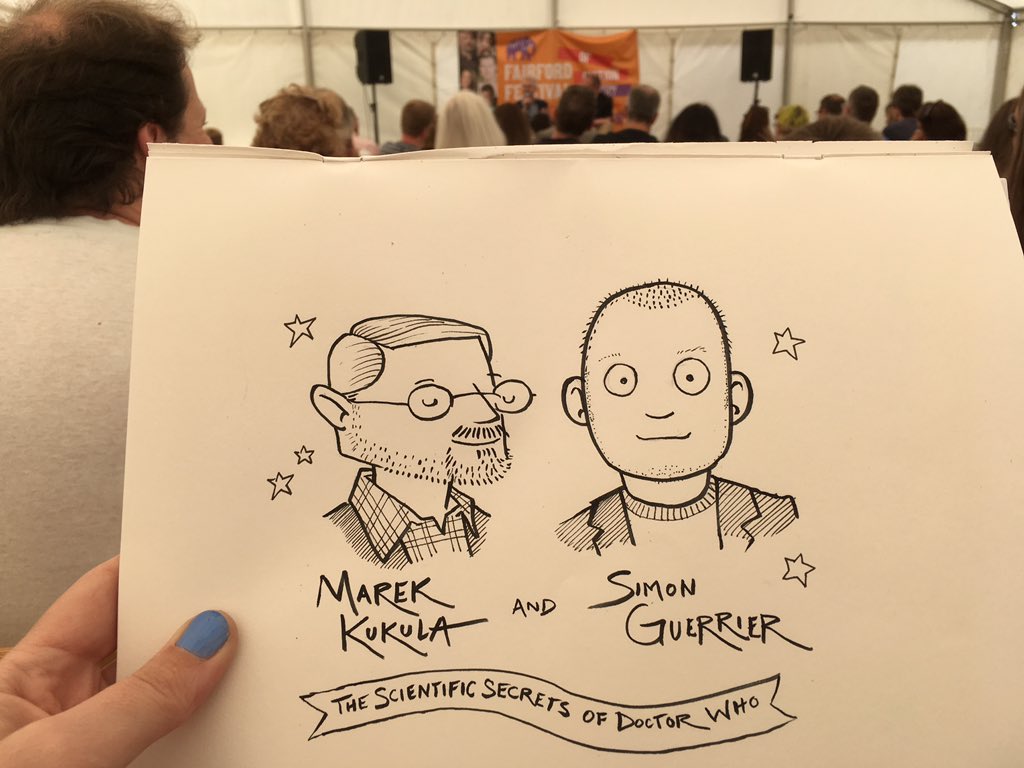 FAIRFORD
FESTIVAL
MAREK
KUKULA
AND
SIMON
GUERRIER
THE SCIENTIFIC SECRETS OF DOCTOR WHO